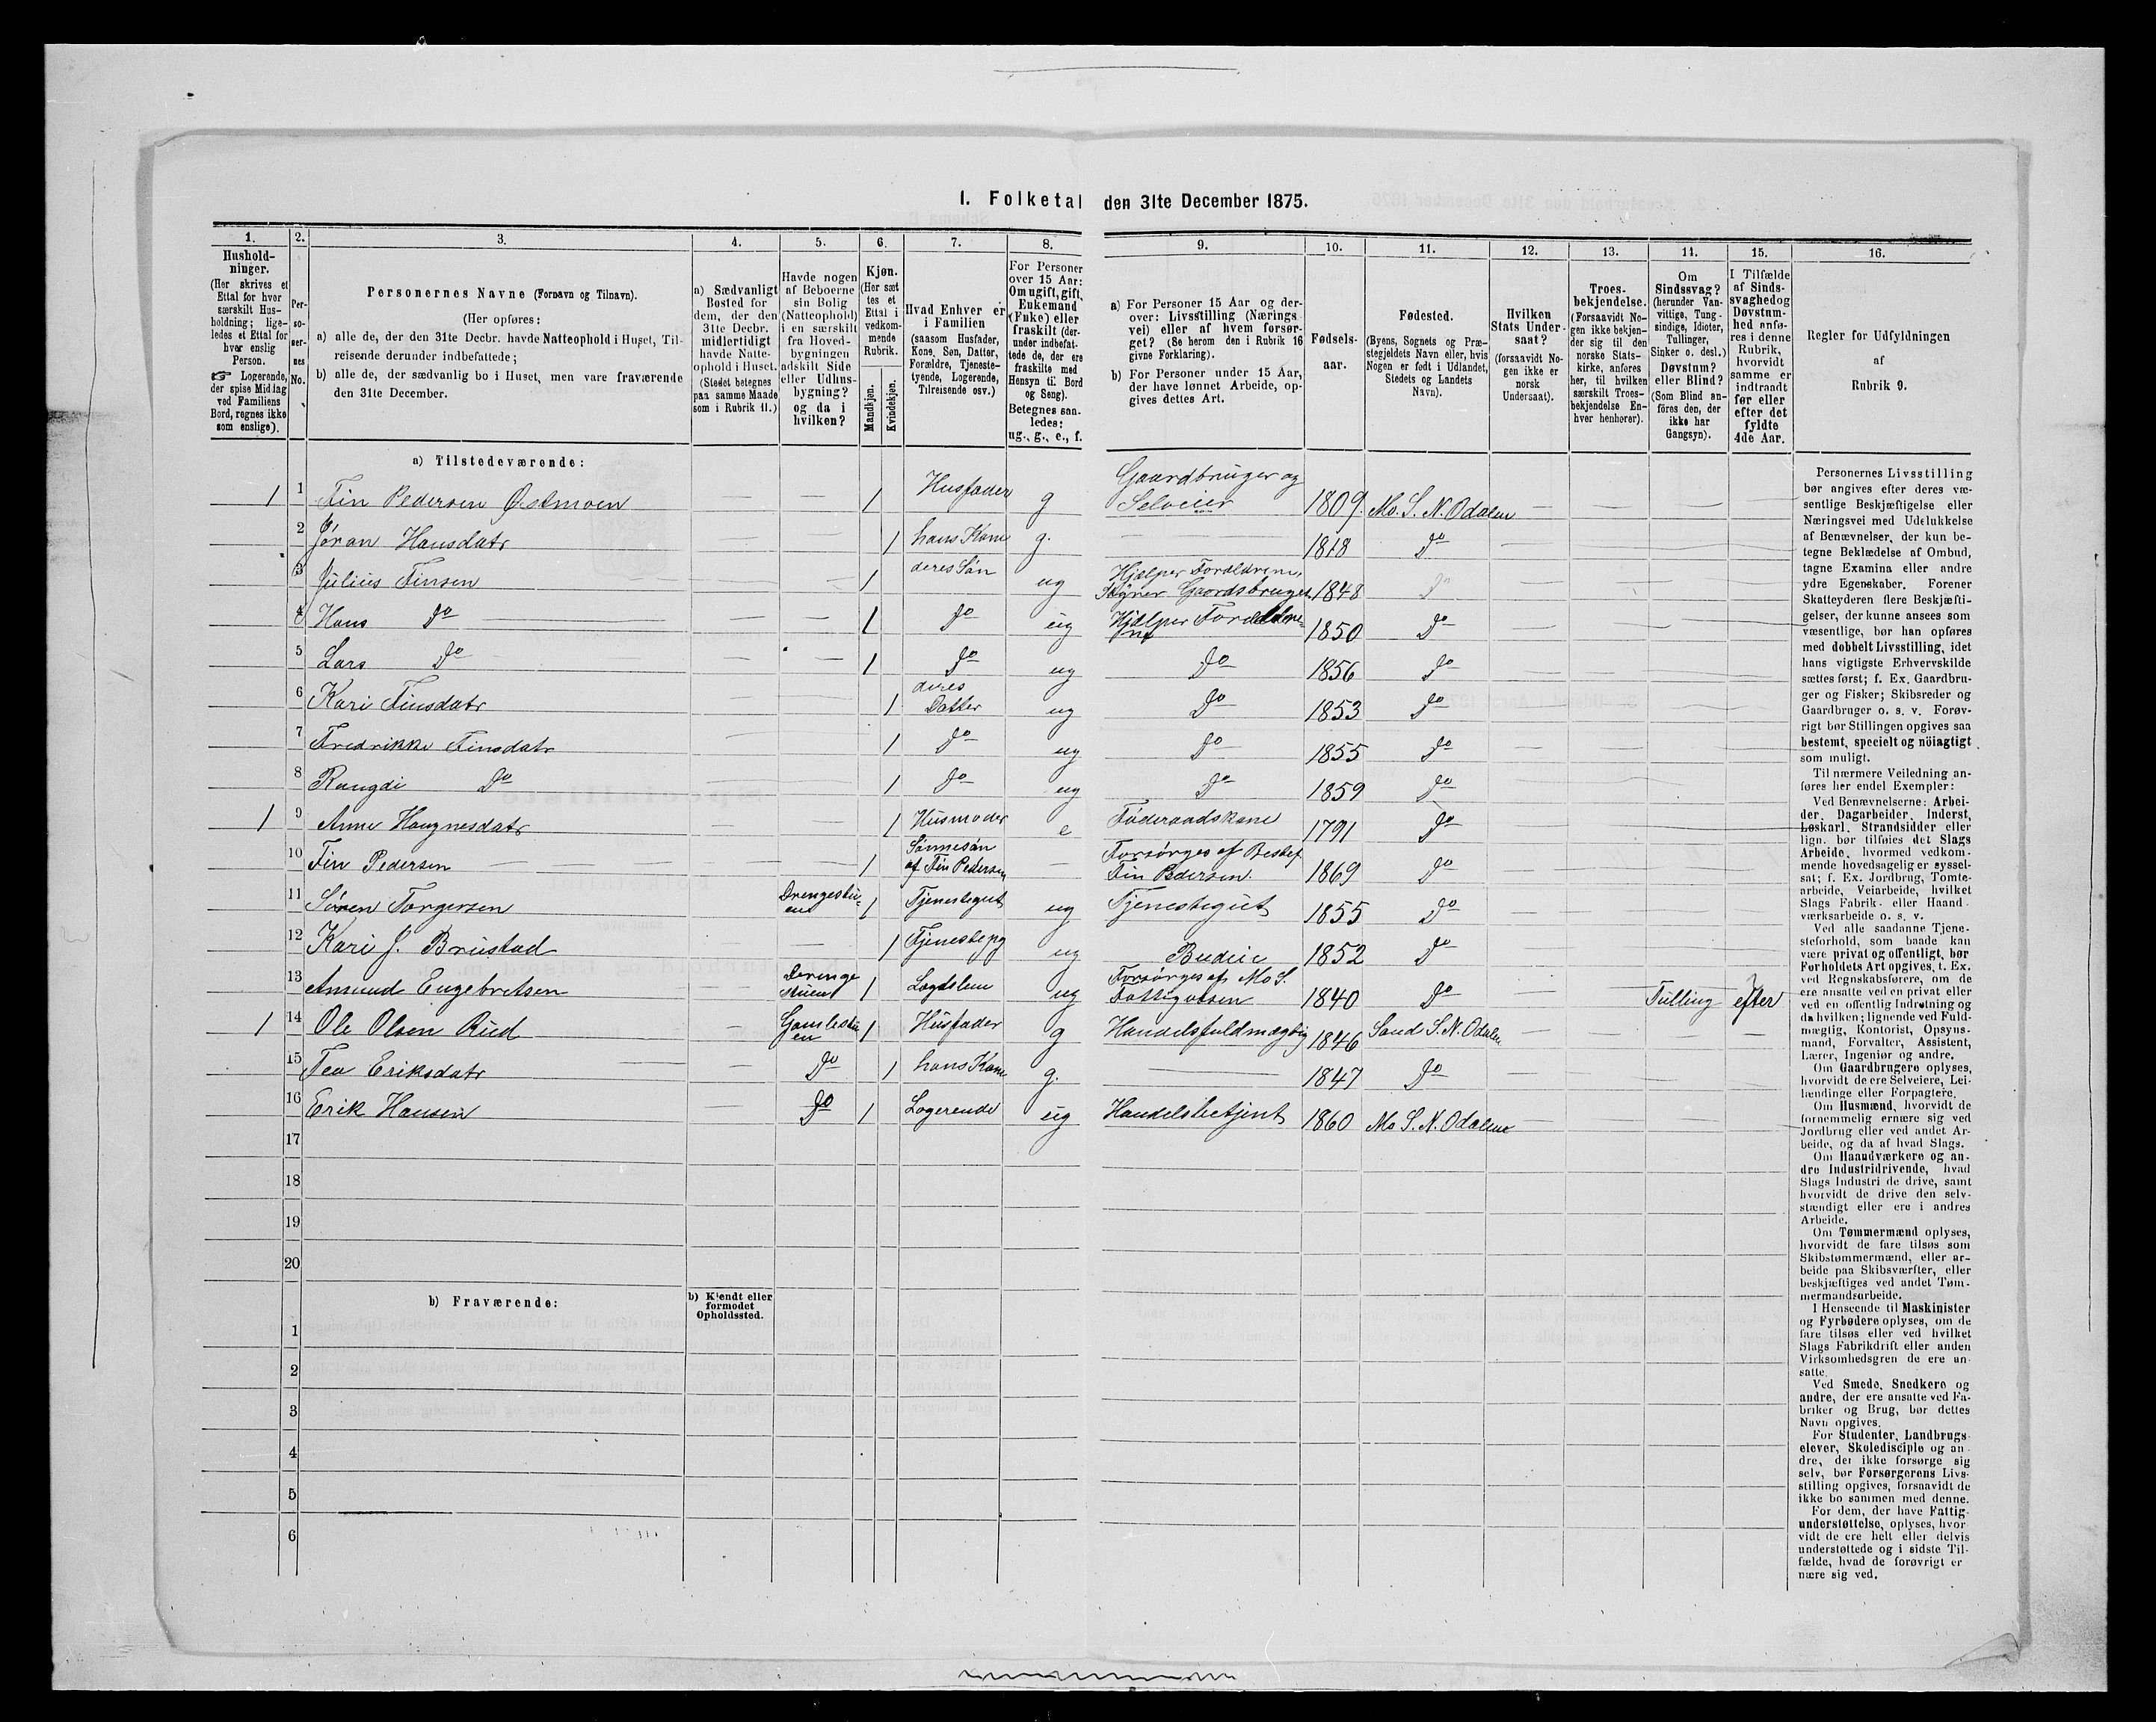 I. Folketal den 31te December 1875.
1. 2. 3. 4. 5. 6. 7. 8. 9. 10. 11. 12. 13. 14. 15. 16.
Husholdninger.
(Her skrives et
Ettal for hver
særskilt Husholdning; ligeledes et Ettal for
hver enslig
Person.
☞ Logerende,
der spise Middag
ved Familiens
Bord, regnes ikke
som enslige).
Personernes No.
Personernes Navne (Fornavn og Tilnavn).
(Her opføres:
a) alle de, der den 31te Decbr. havde Natteophold i Huset, Tilreisende derunder indbefattede;
b) alle de, der sædvanlig bo i Huset, men vare fraværende
den 31te December.
a) Sædvanligt
Bosted for
dem, der den
31te Decbr.
midlertidigt
havde Natteophold i Huset.
(Stedet betegnes
paa samme Maade
som i Rubrik 11.)
Havde nogen
af Beboerne
sin Bolig
(Natteophold)
i en særskilt
fra Hovedbygningen
adskilt Side
eller Udhusbygning?
og da i
hvilken?
Kjøn.
(Her sættes et
Ettal i
vedkommende
Rubrik.
Mandkjøn.
Kvindekjøn.
Hvad Enhver er
i Familien
(saasom Husfader,
Kone, Søn, Datter,
Forældre, Tjenestetyende, Logerende,
Tilreisende osv.)
For Personer
over 15 Aar:
Om ugift, gift,
Enkemand
(Enke) eller
fraskilt (derunder indbefattede de, der ere
fraskilte med
Hensyn til Bord
og Seng).
Betegnes saaledes:
ug., g., e., f.
a) For Personer 15 Aar og derover: Livsstilling (Næringsvei) eller af hvem forsørget? (Se herom den i Rubrik 16
givne Forklaring).
b) For Personer under 15 Aar,
der have lønnet Arbeide, opgives dettes Art.
Fødselsaar.
Fødested.
(Byens, Sognets og Præstegjeldets Navn eller, hvis
Nogen er født i Udlandet,
Stedets og Landets
Navn).
Hvilken
Stats Undersaat?
(forsaavidt Nogen ikke er
norsk
Undersaat).
Troesbekjendelse.
(Forsaavidt Nogen ikke bekjender sig til den
norske Statskirke, anføres
her, til hvilken
særskilt Troesbekjendelse Enhver henhører).
Om
Sindssvag?
(herunder Vanvittige, Tungsindige, Idioter,
Tullinger,
Sinker o. desl.)
Døvstum?
eller Blind?
(Som Blind anføres den, der
ikke har
Gangsyn).
I Tilfælde
af Sindssvaghed og
Døvstumhed anføres i denne
Rubrik,
hvorvidt
samme er
indtraadt
før eller
efter det
fyldte
4de Aar.
Regler for Udfyldningen
af
Rubrik 9.
a) Tilstedeværende:
1 1 Fin Pedersen Østmoen — — 1 Husfader g Gaardbruger og Selveier 1809. Mo. S. N. Odalen
2 Jøran Hansdatr 1 hans Kone g. — 1818 Do
3 Julius Finsen 1 deres Søn ug Hjelper Forældrene, Gaardsbruget 1848 Do
4 Hans Do 1 Do ug Hjælper Forældrene 1850 Do
5 Lars Do 1 Do ug Do 1856 Do
6 Kari Finsdatr 1 deres Datter ug Do 1853 Do
7 Fredrikke Finsdatr 1 Do ug Do 1855 Do
8 Rangdi Do 1 Do ug Do 1859 Do
1 9 Anne Haagnesdatr 1 Husmoder e Føderaadskone 1791 Do
10 Fin Pedersen 1 Sønnesøn af Fin Pedersen — Forsørges af Bestef. Fin Pedersen. 1869 Do
11 Søren Torgersen Drengestuen 1 Tjenestegut ug Tjenestegut 1855 Do
12 Kari J. Brustad 1 Tjenestepg ug Budeie 1852 Do
13 Amund Engebretsen Drengestuen 1 Lægdslem ug Forsørges af Mo S. Fattigvæsen 1840 Do Tulling efter
1 14 Ole Olsen Rud Gamlestuen 1 Husfader g Handelsfuldmægtig 1846 Sand S. N. Odalen
15 Tea Eriksdatr Do 1 hans Kone g. — 1847 Do
16 Erik Hansen Do 1 Logerende ug Handelsbetjent 1860 Mo S. N. Odalen
17
18
19
20
b) Fraværende:
b) Kjendt eller
formodet
Opholdssted.
1
2
3
4
5
6
Personernes Livsstilling
bør angives efter deres væsentlige Beskjæftigelse eller
Næringsvei med Udelukkelse
af Benævnelser, der kun betegne Beklædelse af Ombud,
tagne Examina eller andre
ydre Egenskaber. Forener
Skatteyderen flere Beskjæftigelser, der kunne ansees som
væsentlige, bør han opføres
med dobbelt Livsstilling, idet
hans vigtigste Erhvervskilde
sættes først; f. Ex. Gaardbruger og Fisker; Skibsreder og
Gaardbruger o. s. v. Forøvrigt bør Stillingen opgives saa
bestemt, specielt og nöiagtigt
som muligt.
Til nærmere Veiledning anføres her endel Exempler:
Ved Benævnelserne: Arbeider, Dagarbeider, Inderst,
Løskarl, Strandsidder eller
lign. bør tilføies det Slags
Arbeide, hvormed vedkommende hovedsagelig er sysselsat; f. Ex. Jordbrug, Tomtearbeide, Veiarbeide, hvilket
Slags Fabrik- eller Haandværksarbeide o. s. v.
Ved alle saadanne Tjenesteforhold, som baade kan
være privat og offentligt, bør
Forholdets Art opgives, t. Ex.
ved Regnskabsførere, om de
ere ansatte ved en privat eller
ved en offentlig Indretning og
da hvilken; lignende ved Fuldmægtig, Kontorist, Opsynsmand, Forvalter, Assistent,
Lærer, Ingeniør og andre.
Om Gaardbrugere oplyses,
hvorvidt de ere Selveiere, Leilændinge eller Forpagtere.
Om Husmænd, hvorvidt de
fornemmelig ernære sig ved
Jordbrug eller ved andet Arbeide, og da af hvad Slags.
Om Haandværkere og andre Industridrivende, hvad
Slags Industri de drive, samt
hvorvidt de drive den selvstændigt eller ere i andres
Arbeide.
Om Tømmermænd oplyses,
hvorvidt de fare tilsøs som
Skibstømmermænd, eller arbeide paa Skibsværfter, eller
beskjæftiges ved andet Tømmermandsarbeide.
I Henseende til Maskinister
og Fyrbødere oplyses, om de
fare tilsøs eller ved hvilket
Slags Fabrikdrift eller anden
Virksomhedsgren de ere ansatte.
Ved Smede, Snedkere og
andre, der ere ansatte ved Fabriker og Brug, bør dettes
Navn opgives.
For Studenter, Landbrugselever, Skoledisciple og andre, der ikke forsørge sig
selv, bør Forsørgerens Livsstilling opgives, forsaavidt de
ikke bo sammen med denne.
For dem, der have Fattigunderstøttelse, oplyses, hvorvidt de ere helt eller delvis
understøttede og i sidste Tilfælde, hvad de forøvrigt ernære sig ved.